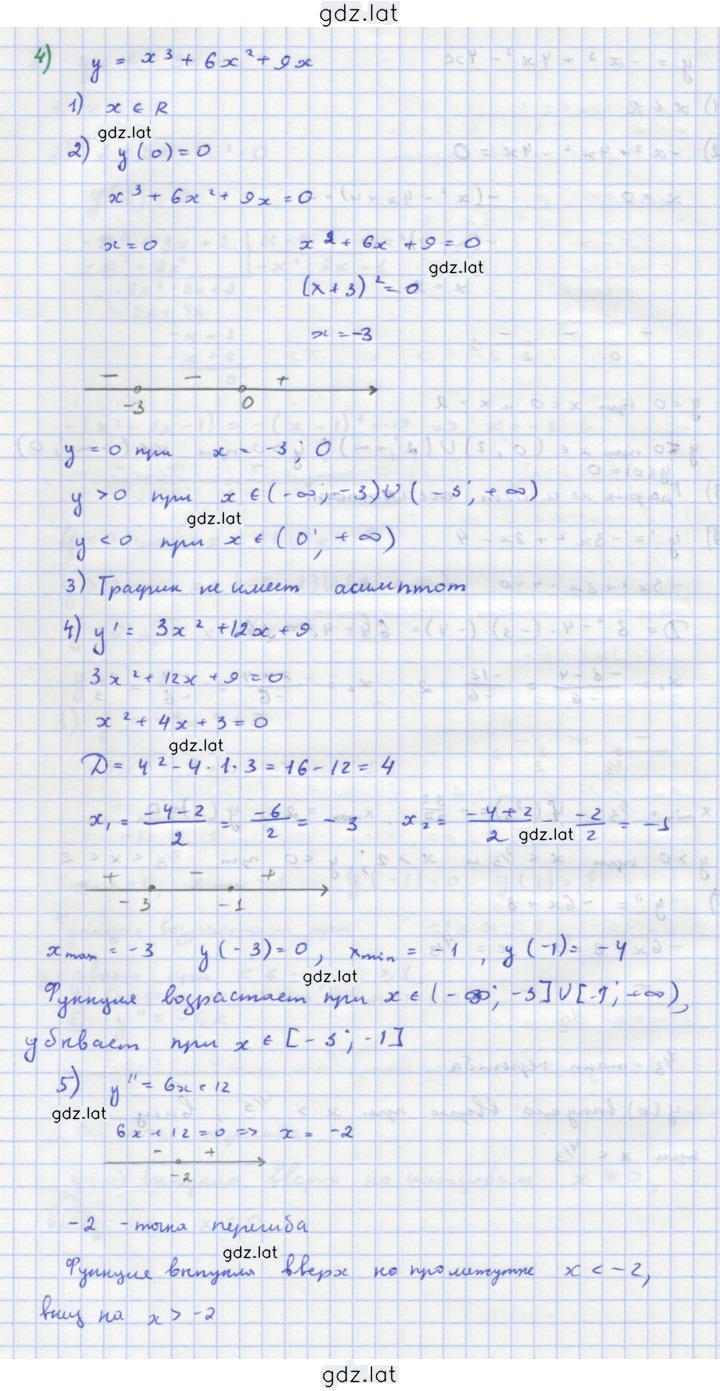 gdz.lat
4) y = x³ + 6x² + 9x
1) x ∈ R
gdz.lat
2) y(0) = 0
x³ + 6x² + 9x = 0
x = 0 x² + 6x + 9 = 0
gdz.lat
(x + 3)² = 0
x = -3
- - +
-3 0
y = 0 при x = -3; 0
y > 0 при x ∈ (-∞; -3) U (-3; +∞)
gdz.lat
y < 0 при x ∈ (0; +∞)
3) График не имеет асимптот
4) y' = 3x² + 12x + 9
3x² + 12x + 9 = 0
x² + 4x + 3 = 0
gdz.lat
D = 4² - 4 · 1 · 3 = 16 - 12 = 4
x₁ = (-4-2)/2 = -6/2 = -3 x₂ = (-4+2)/2 = -2/2 = -1
gdz.lat
+ - +
-3 -1
xmax = -3 y(-3) = 0, xmin = -1, y(-1) = -4
gdz.lat
Функция возрастает при x ∈ (-∞; -3] U [-1; +∞),
убывает при x ∈ [-3; -1]
5) y'' = 6x + 12
gdz.lat
6x + 12 = 0 => x = -2
- +
-2
-2 - точка перегиба
gdz.lat
Функция выпукла вверх на промежутке x < -2,
вниз на x > -2
gdz.lat